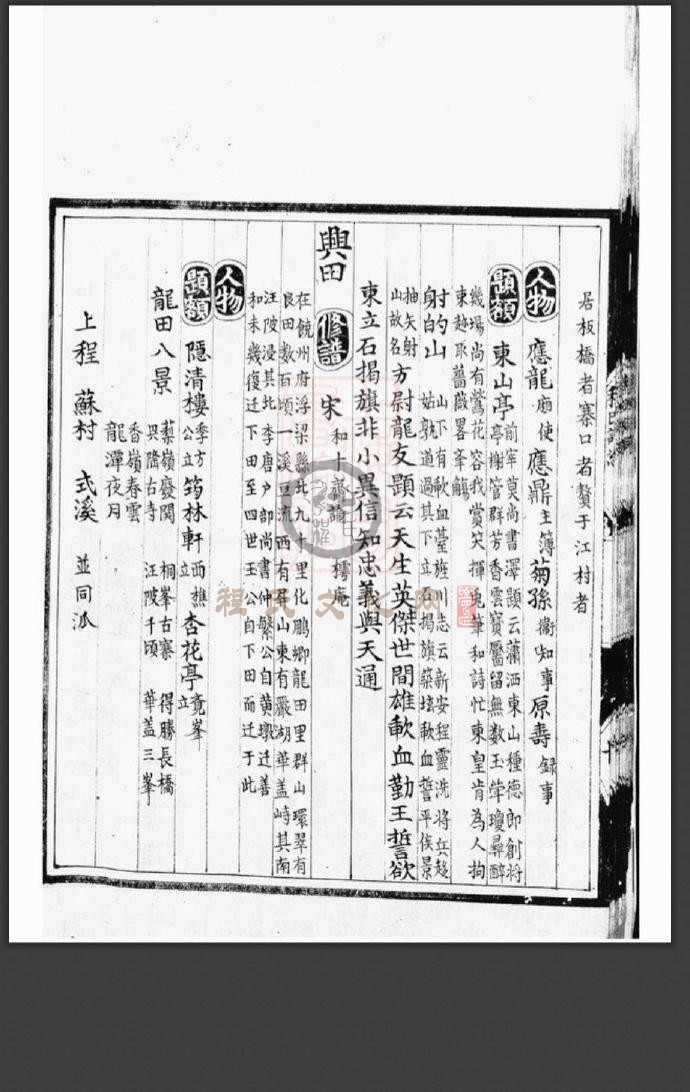 居板橋者寨口者贅于江村者
人物 應龍 廟使 應鼎 主簿 菊孫 衞知事 原壽 録事
題額 東山亭 前宰莫尚書澤題云蕭洒東山種德郎創將
亭榭管群芳香雲寶靨留無数玉斝瓊彛醉
幾場尚有鶯花容我賞笑揮兎筆和詩忙東皇肯為人拘
束趂取薔薇畧夆觴
射的山 山下有歃血䑓旌川志云新安程靈洗將兵趍
姑孰道過其下立石揭旗築坛歃血誓平侯景
抽矢射
山故名 方尉龍友題云天生英傑世間雄歃血勤王誓欲
東立石揭旗非小異信知忠義與天通
興田 修譜 宋 和十 論 樗庵
在饒州府浮梁縣北九十里化鵬鄉龍田里群山環翠有
良田数百頃一溪亘流西有 山東有灝湖華盖峙其南
汪陂浸其北李唐户部尚書仲繁公自黄墩迁善
和未幾復迁下田至四世王公自下田而迁于此
人物
題額 隱清樓 季方公立 筠林軒 西樵立 杏花亭 竟峯立
龍田八景 蘂嶺廢関 桐峯古寨 得勝長橋
㒷隆古寺 汪陂千頃 華盖三峯
香嶺春雲
龍潭夜月
上程 蘇村 弍溪 並同派
程氏文化网